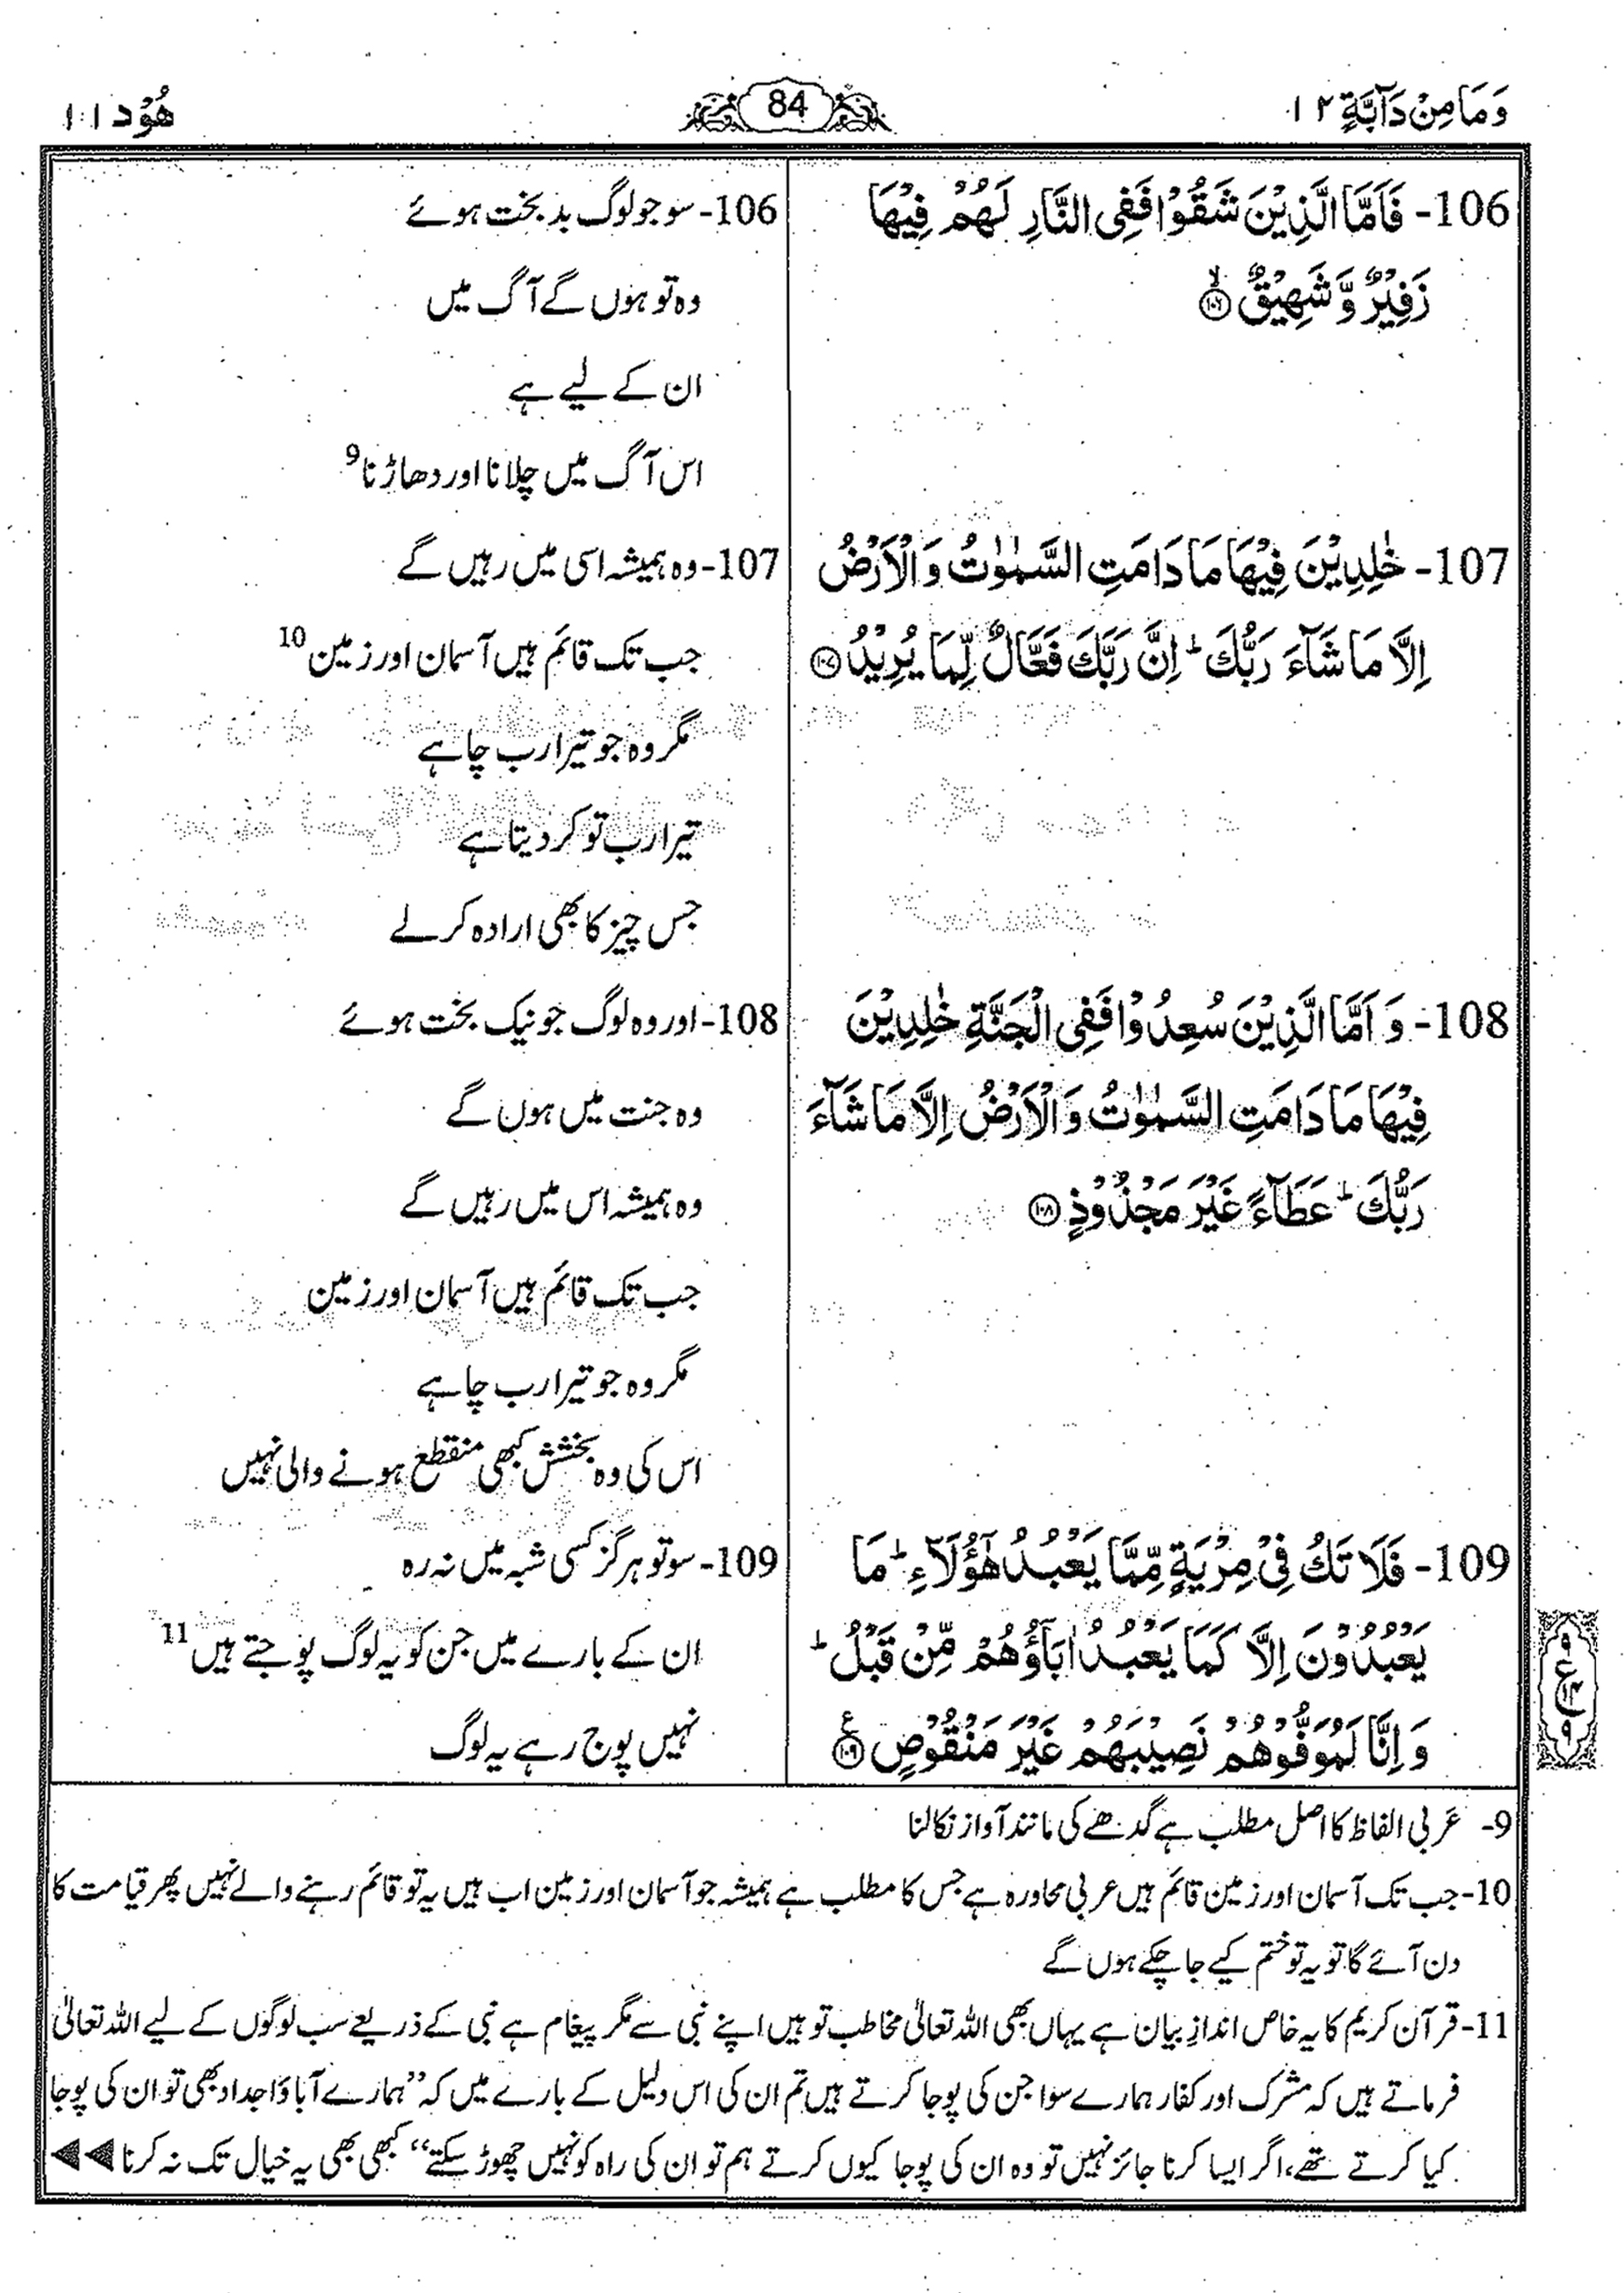 وَمَا مِنْ دَآبَّةٍ ١٢
84
هُوْد ١١
106- فَاَمَّا الَّذِيْنَ شَقُوْا فَفِى النَّارِ لَهُمْ فِيْهَا
زَفِيْرٌ وَّ شَهِيْقٌ ۙ﴿١٠٦﴾
107- خٰلِدِيْنَ فِيْهَا مَا دَامَتِ السَّمٰوٰتُ وَ الْاَرْضُ
اِلَّا مَا شَآءَ رَبُّكَ ؕ اِنَّ رَبَّكَ فَعَّالٌ لِّمَا يُرِيْدُ ﴿١٠٧﴾
108- وَ اَمَّا الَّذِيْنَ سُعِدُوْا فَفِى الْجَنَّةِ خٰلِدِيْنَ
فِيْهَا مَا دَامَتِ السَّمٰوٰتُ وَ الْاَرْضُ اِلَّا مَا شَآءَ
رَبُّكَ ؕ عَطَآءً غَيْرَ مَجْذُوْذٍ ﴿١٠٨﴾
109- فَلَا تَكُ فِىْ مِرْيَةٍ مِّمَّا يَعْبُدُ هٰٓؤُلَآءِ ؕ مَا
يَعْبُدُوْنَ اِلَّا كَمَا يَعْبُدُ اٰبَآؤُهُمْ مِّنْ قَبْلُ ؕ
وَ اِنَّا لَمُوَفُّوْهُمْ نَصِيْبَهُمْ غَيْرَ مَنْقُوْصٍ ﴿١٠٩﴾ ع
106- سو جو لوگ بد بخت ہوئے
وہ تو ہوں گے آگ میں
ان کے لیے ہے
اس آگ میں چلانا اور دھاڑنا 9
107- وہ ہمیشہ اسی میں رہیں گے
جب تک قائم ہیں آسمان اور زمین 10
مگر وہ جو تیرا رب چاہے
تیرا رب تو کر دیتا ہے
جس چیز کا بھی ارادہ کر لے
108- اور وہ لوگ جو نیک بخت ہوئے
وہ جنت میں ہوں گے
وہ ہمیشہ اس میں رہیں گے
جب تک قائم ہیں آسمان اور زمین
مگر وہ جو تیرا رب چاہے
اس کی وہ بخشش کبھی منقطع ہونے والی نہیں
109- سو تو ہرگز کسی شبہ میں نہ رہ
ان کے بارے میں جن کو یہ لوگ پوجتے ہیں 11
نہیں پوج رہے یہ لوگ
9- عربی الفاظ کا اصل مطلب ہے گدھے کی مانند آواز نکالنا
10- جب تک آسمان اور زمین قائم ہیں عربی محاورہ ہے جس کا مطلب ہے ہمیشہ جو آسمان اور زمین اب ہیں یہ تو قائم رہنے والے نہیں پھر قیامت کا
دن آئے گا تو یہ تو ختم کیے جا چکے ہوں گے
11- قرآن کریم کا یہ خاص اندازِ بیان ہے یہاں بھی اللہ تعالیٰ مخاطب تو ہیں اپنے نبی سے مگر پیغام ہے نبی کے ذریعے سب لوگوں کے لیے اللہ تعالیٰ
فرماتے ہیں کہ مشرک اور کفار ہمارے سوا جن کی پوجا کرتے ہیں تم ان کی اس دلیل کے بارے میں کہ ”ہمارے آباؤ اجداد بھی تو ان کی پوجا
کیا کرتے تھے، اگر ایسا کرنا جائز نہیں تو وہ ان کی پوجا کیوں کرتے ہم تو ان کی راہ کو نہیں چھوڑ سکتے“ کبھی بھی یہ خیال تک نہ کرنا ◀◀